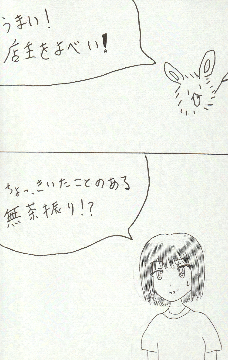 うまい!
店主をよべい!
ちょっ、きいたことのある
無茶振り!?